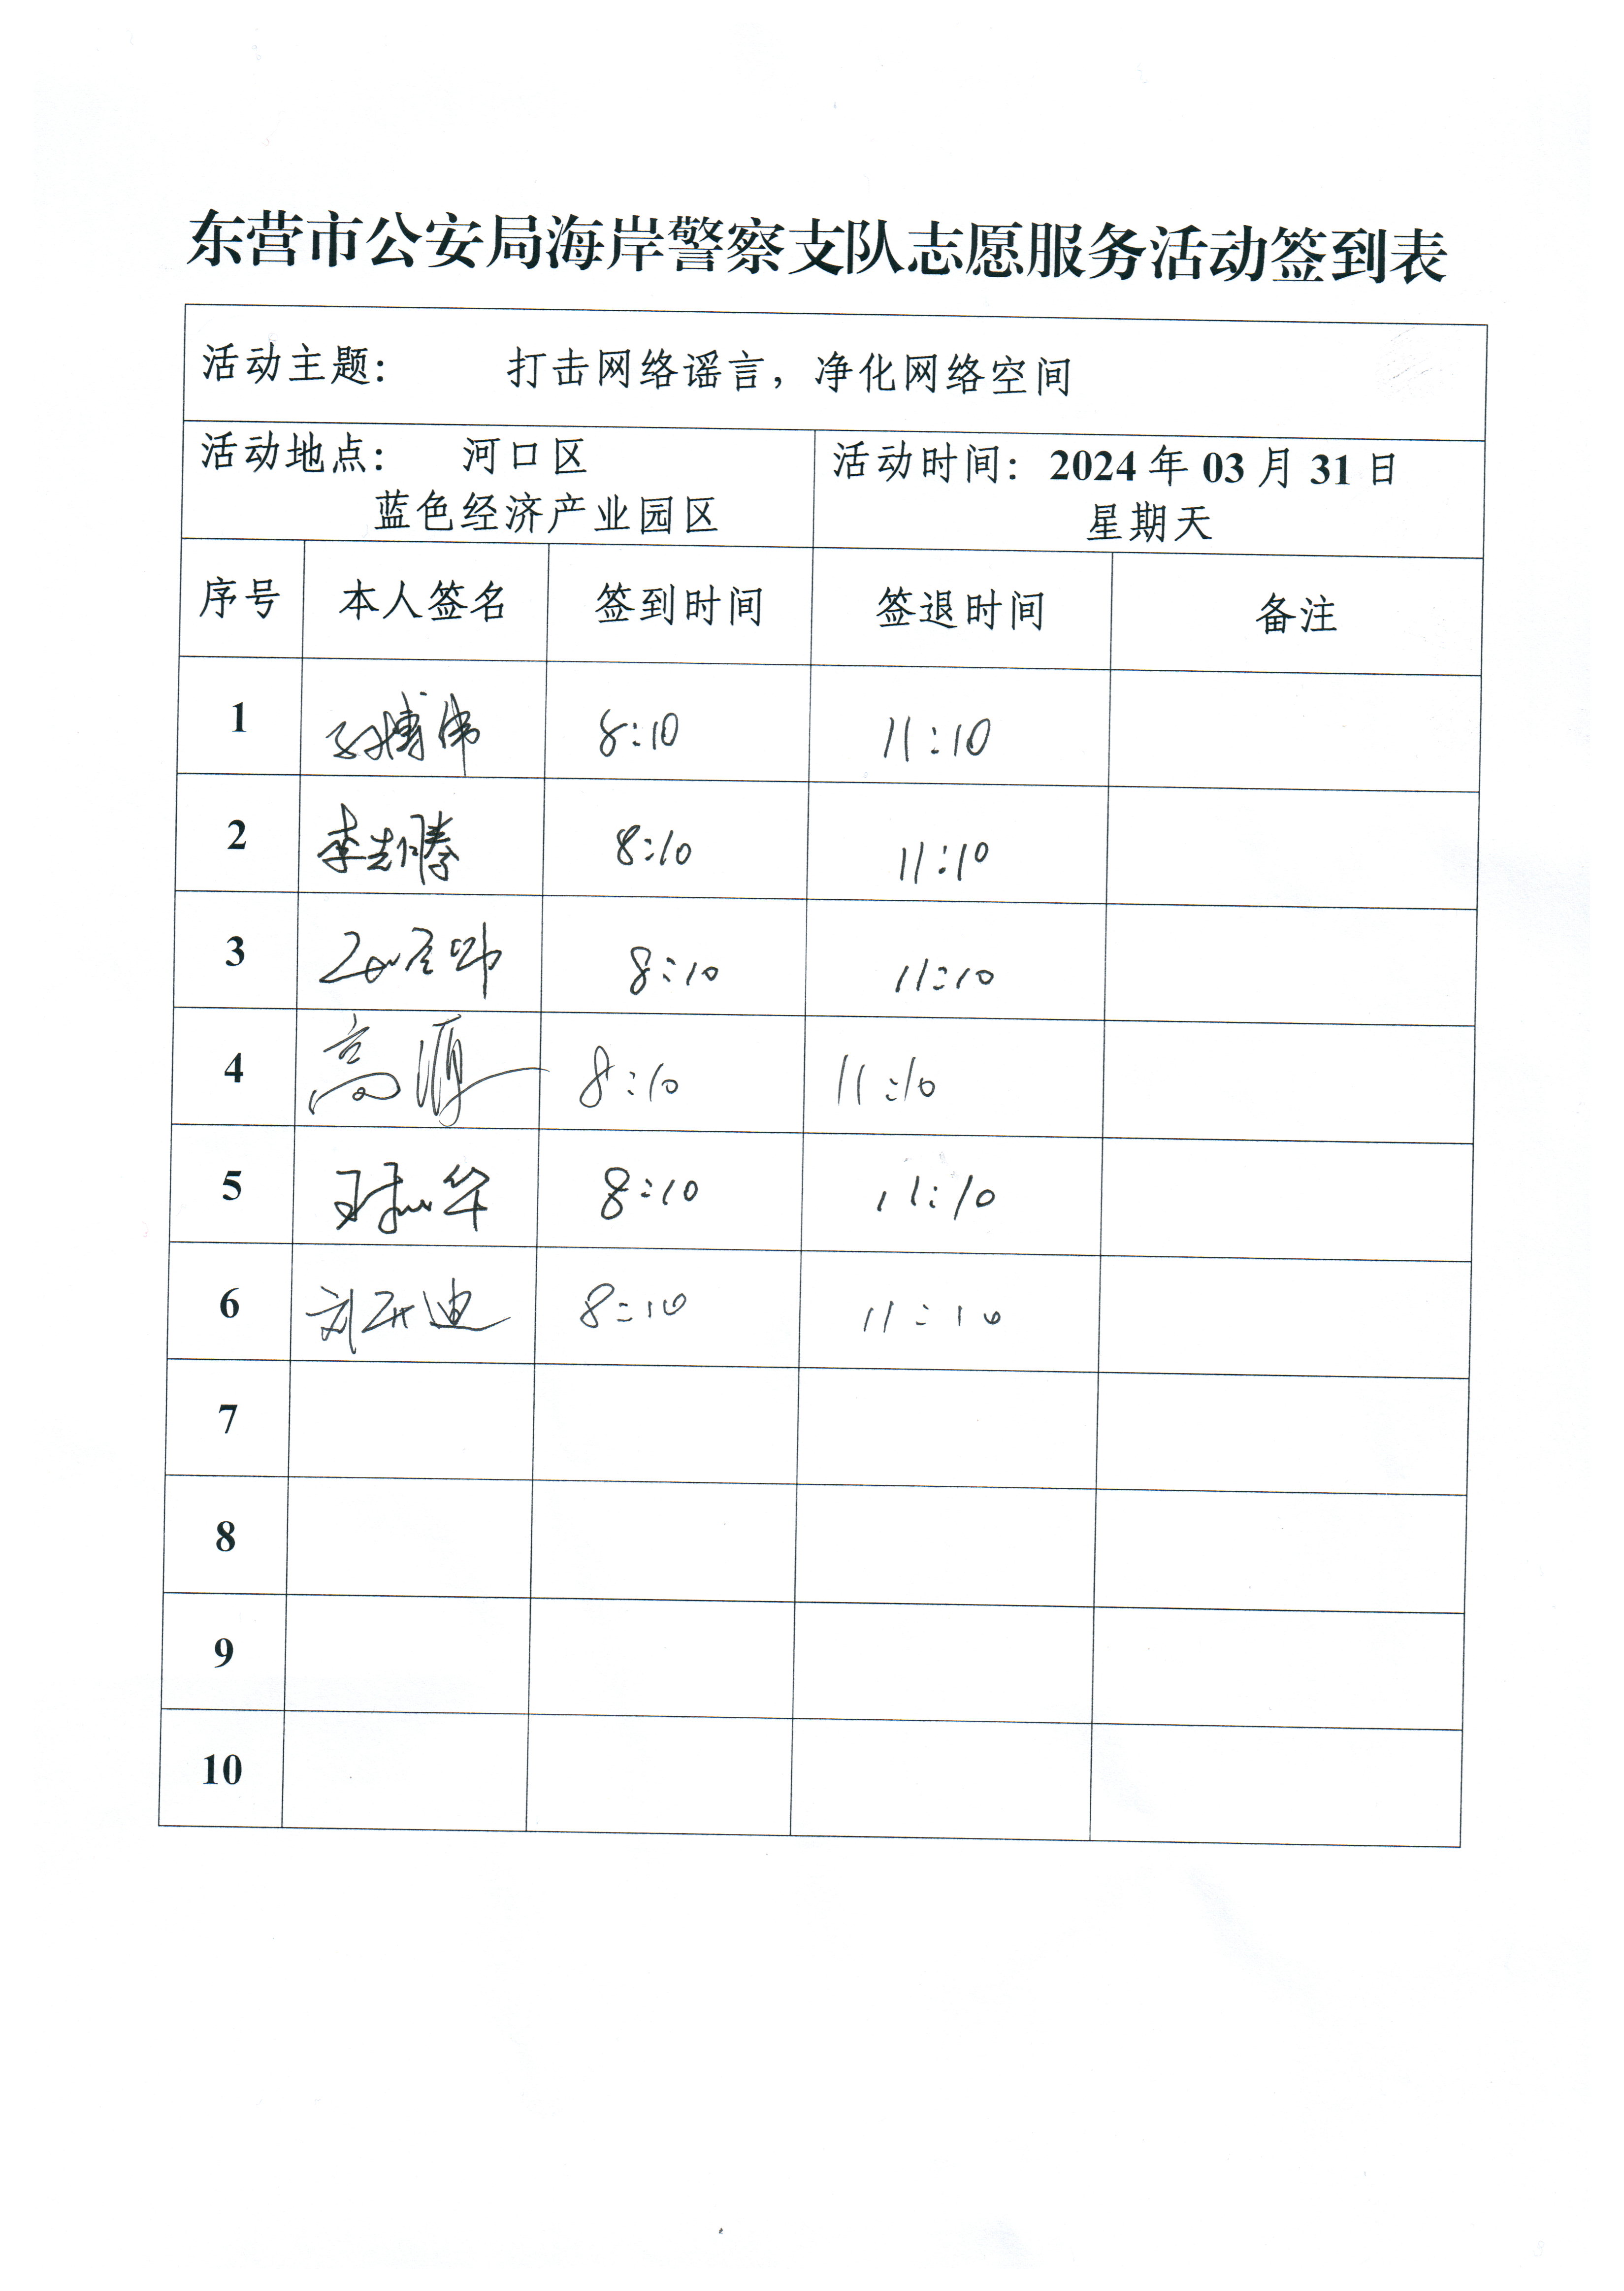 东营市公安局海岸警察支队志愿服务活动签到表
活动主题： 打击网络谣言，净化网络空间
活动地点： 河口区
蓝色经济产业园区
活动时间：2024年03月31日
星期天
序号 本人签名 签到时间 签退时间 备注
1 孙博伟 8:10 11:10
2 李先腾 8:10 11:10
3 8:10 11:10
4 高源 8:10 11:10
5 8:10 11:10
6 刘开迪 8:10 11:10
7
8
9
10